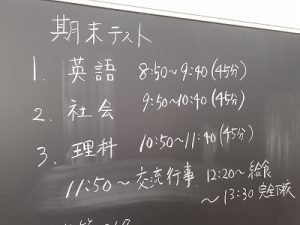 期末テスト
1. 英語 8:50~9:40(45分)
2. 社会 9:50~10:40(45分)
3. 理科 10:50~11:40(45分)
11:50~交流行事 12:20~給食
~13:30 完全下校